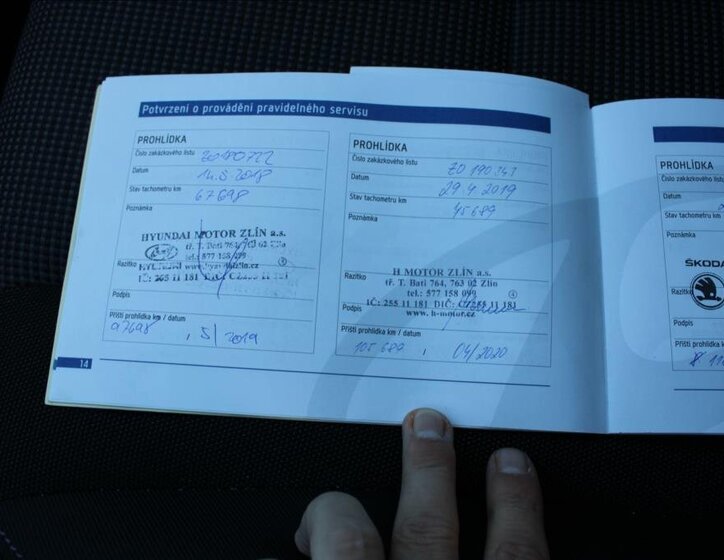 Potvrzení o provádění pravidelného servisu
PROHLÍDKA
Číslo zakázkového listu
Datum 14.5.2018
Stav tachometru km 67698
Poznámka
HYUNDAI MOTOR ZLÍN a.s.
tř. T. Bati 764, 763 02 Zlín
tel.: 577 158 099
Razítko
IČ: 255 11 181 DIČ: CZ255 11 181
Podpis
Příští prohlídka km / datum
97698 , 5/2019
14
PROHLÍDKA
Číslo zakázkového listu ZO190343
Datum 29.4.2019
Stav tachometru km 45689
Poznámka
H MOTOR ZLÍN a.s.
tř. T. Bati 764, 763 02 Zlín
Razítko
tel.: 577 158 099
IČ: 255 11 181 DIČ: CZ255 11 181
www.h-motor.cz
Podpis
Příští prohlídka km / datum
105 689 , 04/2020
PROHLÍDKA
Číslo zakázkového listu
Datum
Stav tachometru km
Poznámka
ŠKODA
Podpis
Příští prohlídka km